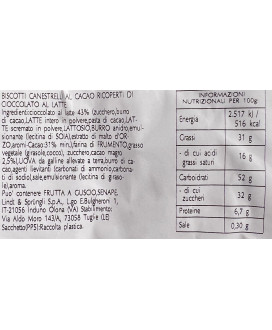 BISCOTTI CANESTRELLI AL CACAO RICOPERTI DI
CIOCCOLATO AL LATTE
Ingredienti:cioccolato al latte 43% (zucchero,burro
di cacao,LATTE intero in polvere,pasta di cacao,LAT-
TE scremato in polvere,LATTOSIO,BURRO anidro,emul-
sionante (lecitina di SOIA),estratto di malto d'OR-
ZO,aromi-Cacao:31% min.),farina di FRUMENTO,grasso
vegetale (girasole,cocco), zucchero,cacao magro
2,5%,UOVA da galline allevate a terra,burro di ca-
cao,agenti lievitanti (carbonati di ammonio,carbona-
ti di sodio),sale,emulsionante (lecitina di giraso-
le),aroma.
Puo' contenere FRUTTA A GUSCIO,SENAPE.
Lindt & Sprüngli S.p.A., L.go E.Bulgheroni 1,
IT-21056 Induno Olona (VA) Stabilimento:
Via Aldo Moro 143/A, 73058 Tuglie (LE)
Sacchetto(PP5):Raccolta plastica.
INFORMAZIONI
NUTRIZIONALI PER 100g
Energia 2.517 kJ /
516 kcal
Grassi 31 g
- di cui acidi
grassi saturi 16 g
Carboidrati 52 g
- di cui
zuccheri 32 g
Proteine 6,7 g
Sale 0,30 g